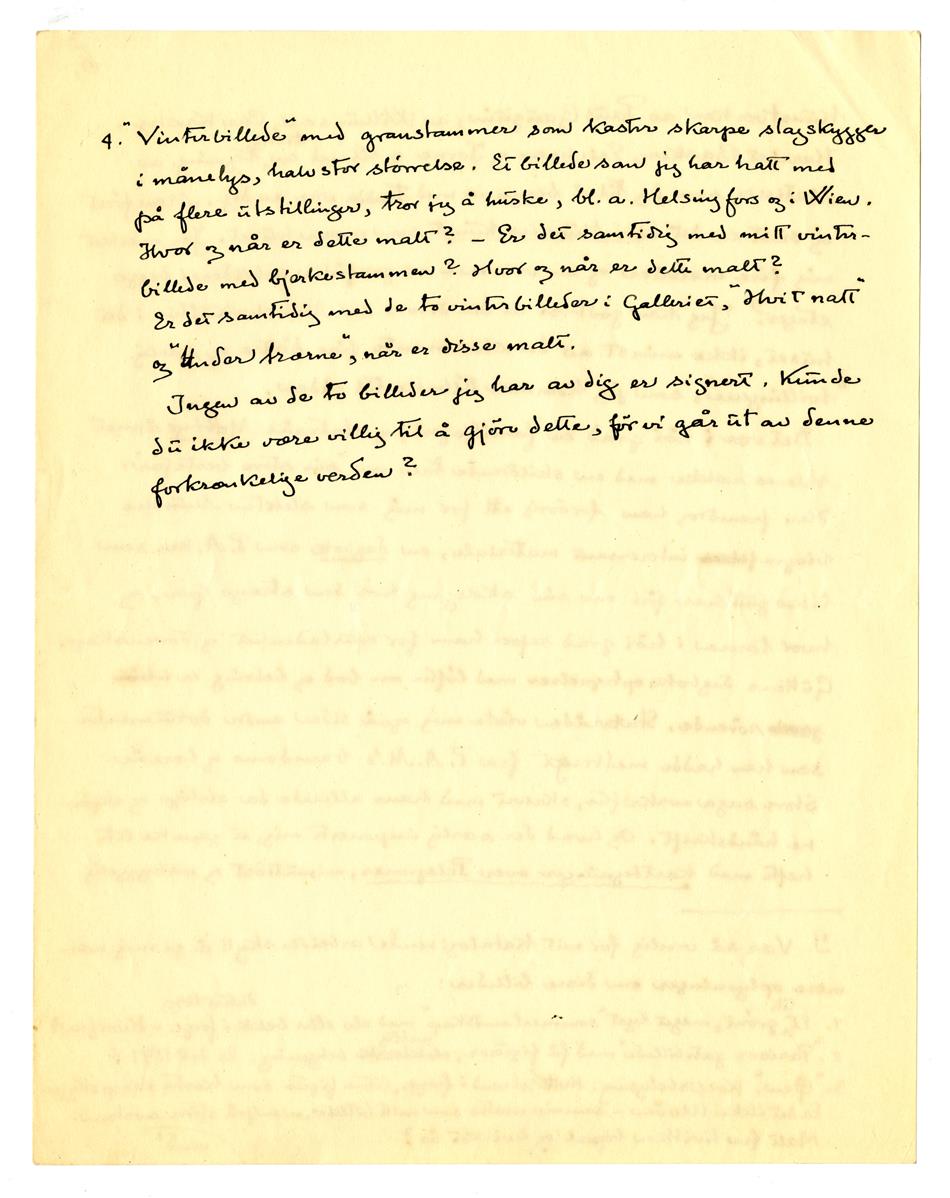 4. "Vinterbillede" med granstammer som kaster skarpe slagskygger
i månelys, halvstor størrelse. Et billede som jeg har hatt med
på flere utstillinger, tror jeg å huske, bl. a. Helsingfors og i Wien.
Hvor og når er dette malt? – Er det samtidig med mitt vinter-
billede med bjerkestammen? Hvor og når er dette malt?
Er det samtidig med de to vinterbilleder i Galleriet, "Hvit natt"
og "Under trærne", når er disse malt.
Ingen av de to billeder jeg har av dig er signert. Kunde
du ikke være villig til å gjöre dette, før vi går ut av denne
forkrænkelige verden?